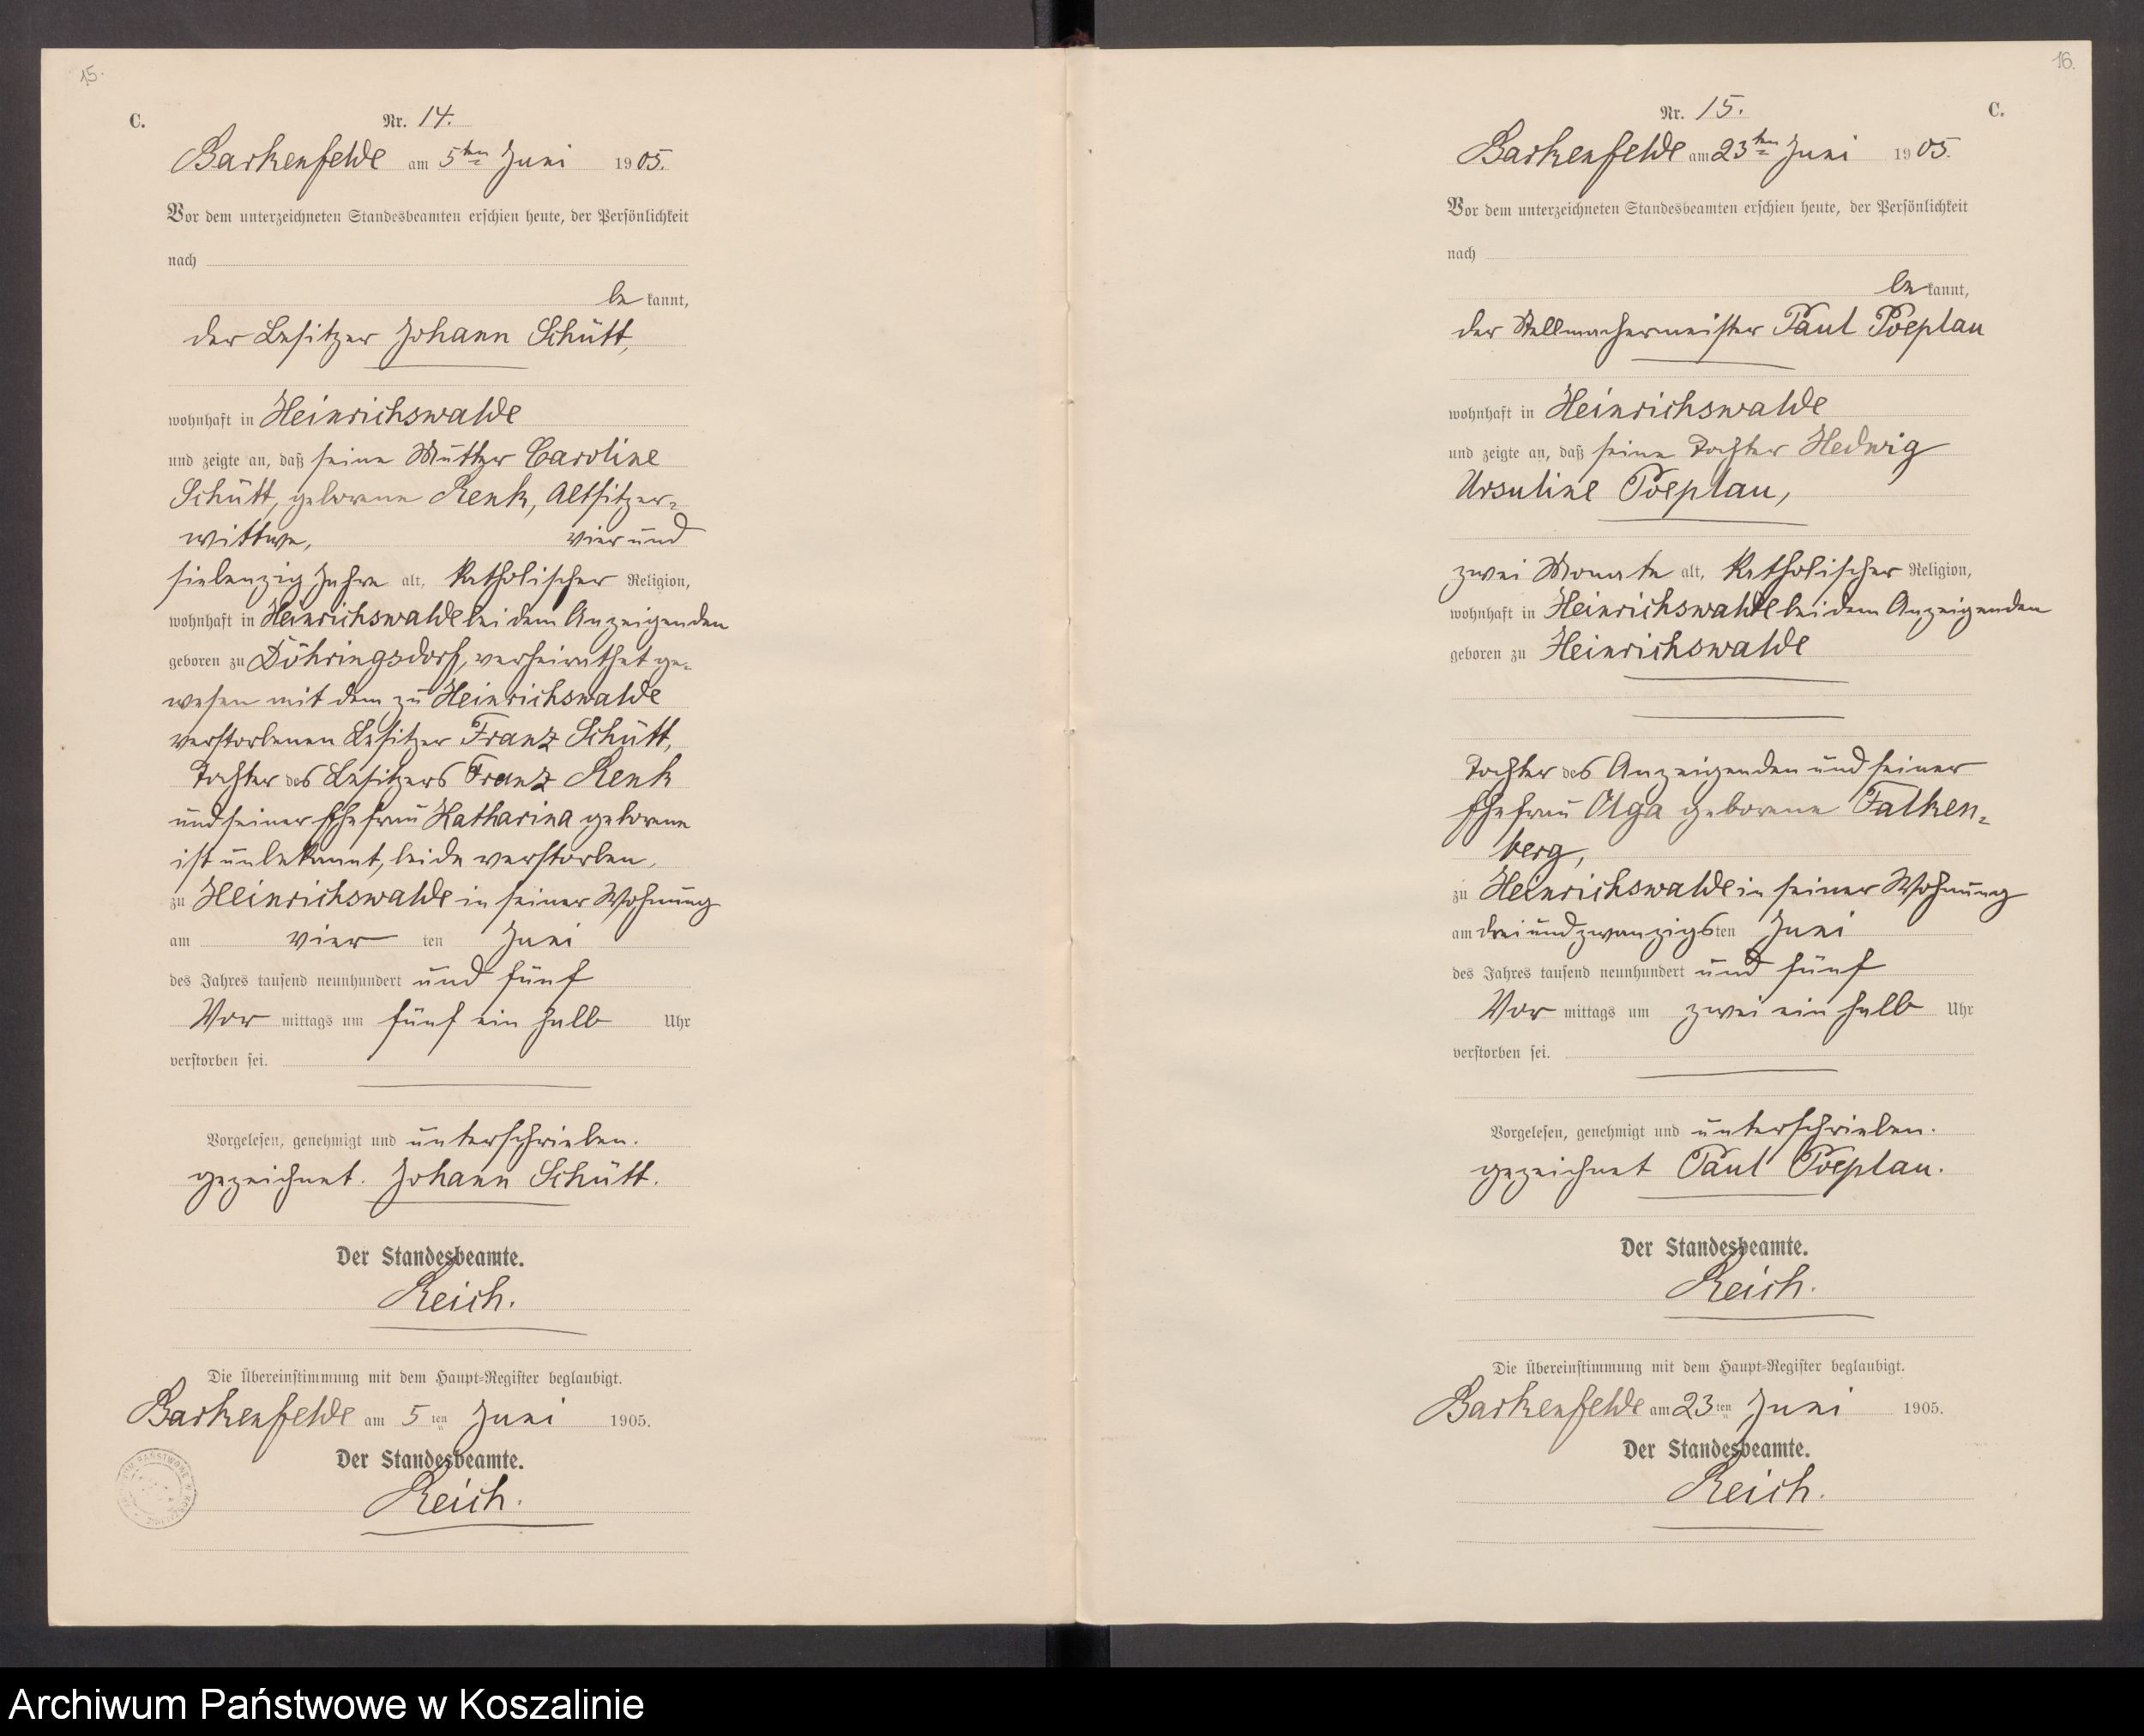 15.
C.
Nr. 14.
Barkenfelde am 5ten Juni 1905.
Vor dem unterzeichneten Standesbeamten erschien heute, der Persönlichkeit
nach
be kannt,
der Besitzer Johann Schütt,
wohnhaft in Heinrichswalde
und zeigte an, daß seine Mutter Caroline
Schütt, geborene Renk, Altsitzer-
wittwe, vier und
siebenzig Jahre alt, katholischer Religion,
wohnhaft in Heinrichswalde bei dem Anzeigenden
geboren zu Döhringsdorf, verheirathet ge-
wesen mit dem zu Heinrichswalde
verstorbenen Besitzer Franz Schütt,
Tochter des Besitzers Franz Renk
und seiner Ehefrau Katharina geborene
ist unbekannt, beide verstorben,
zu Heinrichswalde in seiner Wohnung
am vier ten Juni
des Jahres tausend neunhundert und fünf
Vor mittags um fünf ein halb Uhr
verstorben sei.
Vorgelesen, genehmigt und unterschrieben.
gezeichnet. Johann Schütt.
Der Standesbeamte.
Reich.
Die Übereinstimmung mit dem Haupt-Register beglaubigt.
Barkenfelde am 5 ten Juni 1905.
Der Standesbeamte.
Reich.
16.
Nr. 15.
C.
Barkenfelde am 23ten Juni 1905.
Vor dem unterzeichneten Standesbeamten erschien heute, der Persönlichkeit
nach
be kannt,
der Stellmachermeister Paul Poeplau
wohnhaft in Heinrichswalde
und zeigte an, daß seine Tochter Hedwig
Ursuline Poeplau,
zwei Monate alt, katholischer Religion,
wohnhaft in Heinrichswalde bei dem Anzeigenden
geboren zu Heinrichswalde
Tochter des Anzeigenden und seiner
Ehefrau Olga geborene Falken-
berg,
zu Heinrichswalde in seiner Wohnung
am drei und zwanzigsten Juni
des Jahres tausend neunhundert und fünf
Vor mittags um zwei ein halb Uhr
verstorben sei.
Vorgelesen, genehmigt und unterschrieben.
gezeichnet Paul Poeplau.
Der Standesbeamte.
Reich.
Die Übereinstimmung mit dem Haupt-Register beglaubigt.
Barkenfelde am 23 ten Juni 1905.
Der Standesbeamte.
Reich.
Archiwum Państwowe w Koszalinie